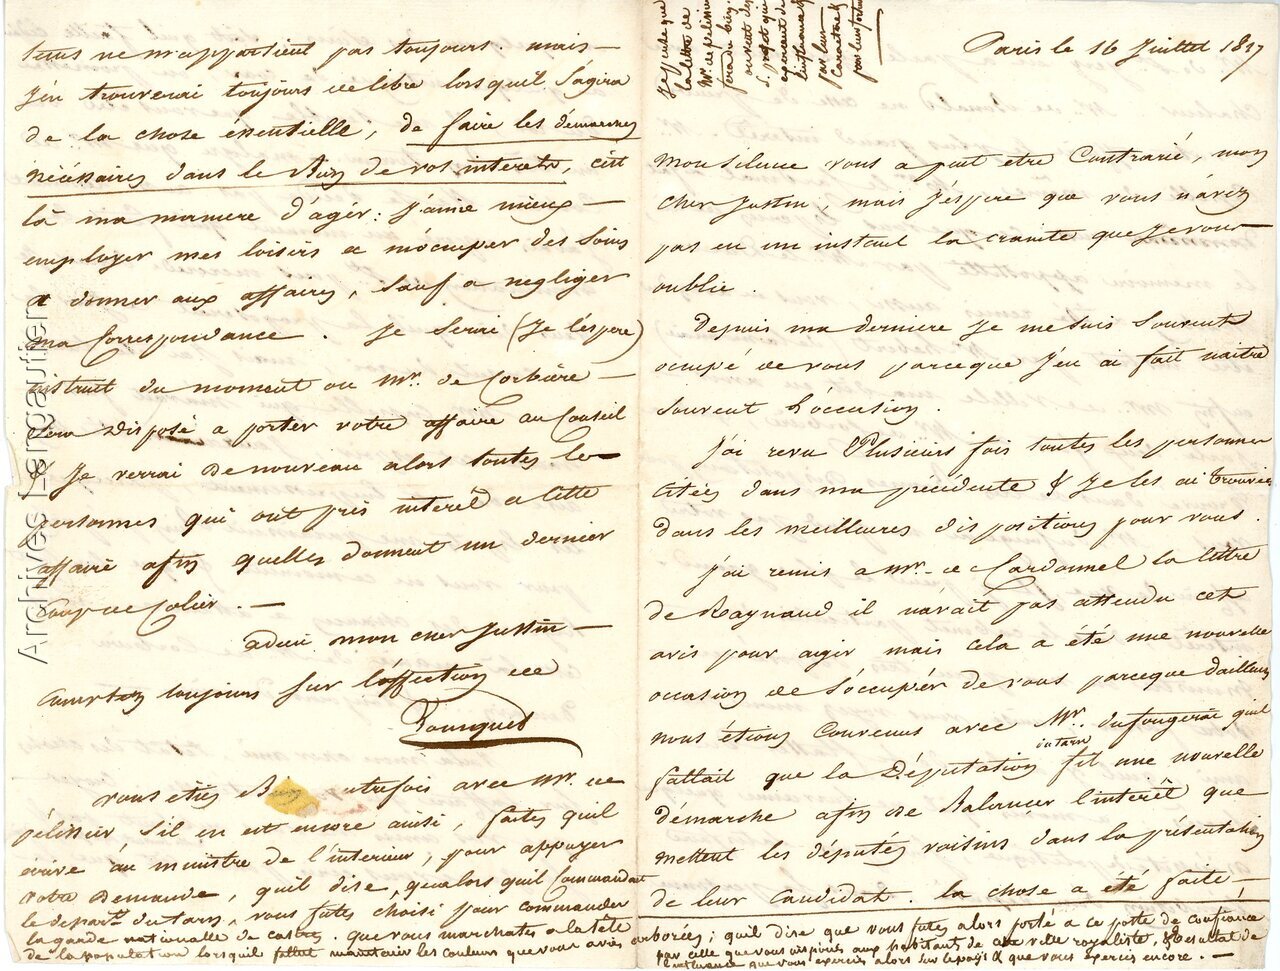 Paris le 16 Juillet 1817
Mon silence vous a peut etre Contrarié, mon
cher Justin, mais J'éspere que vous n'avez
pas eu un instant la crainte que Je vous
oublie.
Depuis ma derniere Je me suis Souvent
ocupé de vous parceque J'en ai fait naitre
Souvent l'óccasion.
J'ai revu Plusieurs fois toutes les personnes
Citées dans ma précédente & Je les ai trouvées
dans les meilleures dispositions pour vous.
J'ai remis a Mr. de Cardonnel la lettre
de Raynaud il n'avait pas attendu cet
avis pour agir mais cela a été une nouvelle
occasion de s'óccupér de vous parceque d'ailleurs
nous étions Convenus avec Mr. dufougerai quil
fallait que la Députation du tarn fit une nouvelle
démarche afin de Balancer l'interêt que
mettent les députés voisins dans la présentation
de leur Candidat. la chose a été faite,
tems ne m'appartient pas toujours. mais
J'en trouverai toujours de libre lorsquil S'agira
de la chose éssentielle, de faire les démarches
nécéssaires dans le Sens de vos interets, c'est
là ma maniere d'agir: J'aime mieux
employer mes loisirs a m'óccuper des soins
a donner aux affaires, Sauf a negliger
ma Correspondance. Je serai (Je l'éspere)
instruit du moment ou Mr. de Corbière
sera Disposé a porter votre affaire au Conseil
& Je verrai de nouveau alors toutes les
personnes qui ont pris intérêt a Cette
affaire afin quelles donnent un dernier
Coup de Colier.
adieu mon cher Justin
Comptez toujours sur l'affection de
Vous etiez autrefois avec Mr. de
pélissier, S'il en est encore ainsi, faites quil
écrive au ministre de l'interieur, pour appuyer
votre Demande, quil dise, qualors quil Commandait
le départt. du tarn, vous futes choisi pour commander
la garde nationale de castres, que vous marchates a la tête
de la population lorsquil fallut maintenir les couleurs que vous aviés
arborées; quil dise que vous futes alors porté a ce poste de confiance
par celle que vous inspiriez aux habitants de cette ville royaliste, & Resultat de
l'influence que vous exerciés alors sur le pays & que vous exerciés encore.
Je pense que
la lettre de
Mr. de pelissier
fera bien
par leur
Caractere &
par leur fortune
Archives Lengautien